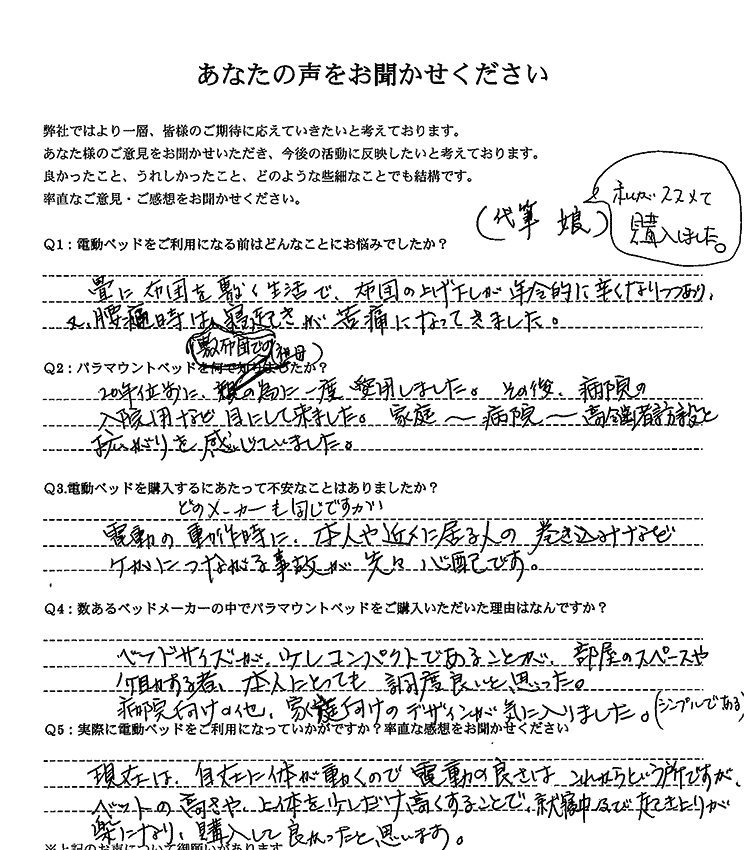 あなたの声をお聞かせください
弊社ではより一層、皆様のご期待に応えていきたいと考えております。
あなた様のご意見をお聞かせいただき、今後の活動に反映したいと考えております。
良かったこと、うれしかったこと、どのような些細なことでも結構です。
率直なご意見・ご感想をお聞かせください。
(代筆 娘)
私がススメて
購入しました。
Q1：電動ベッドをご利用になる前はどんなことにお悩みでしたか？
畳に布団を敷く生活で、布団の上げ下しが年令的に辛くなりつつあり、
又、腰痛時は寝起きが苦痛になってきました。
(敷布団での)
(祖母)
Q2：パラマウントベッドを何で知りましたか？
20年位前に、の為に一度愛用しました。その後、病院の
入院用など目にして来ました。家庭〜病院〜高令者施設と
拡がりを感じていました。
Q3.電動ベッドを購入するにあたって不安なことはありましたか？
どのメーカーも同じですが
電動の動作時に、本人や近くに居る人の巻き込みなど
ケガにつながる事故が少々心配です。
Q4：数あるベッドメーカーの中でパラマウントベッドをご購入いただいた理由はなんですか？
ベッドサイズが、少しコンパクトであることが、部屋のスペースや
介助する者、本人にとっても調度良いと思った。
病院向けの他、家庭向けのデザインが気に入りました。(シンプルである)
Q5：実際に電動ベッドをご利用になっていかがですか？率直な感想をお聞かせください
現在は、自在に体が動くので電動の良さはこれからという所ですが、
ベットの高さや、上体を少しだけ高くすることで、就寝中及び起き上りが
楽になり、購入して良かったと思います。
※上記のお声について御願いがあります